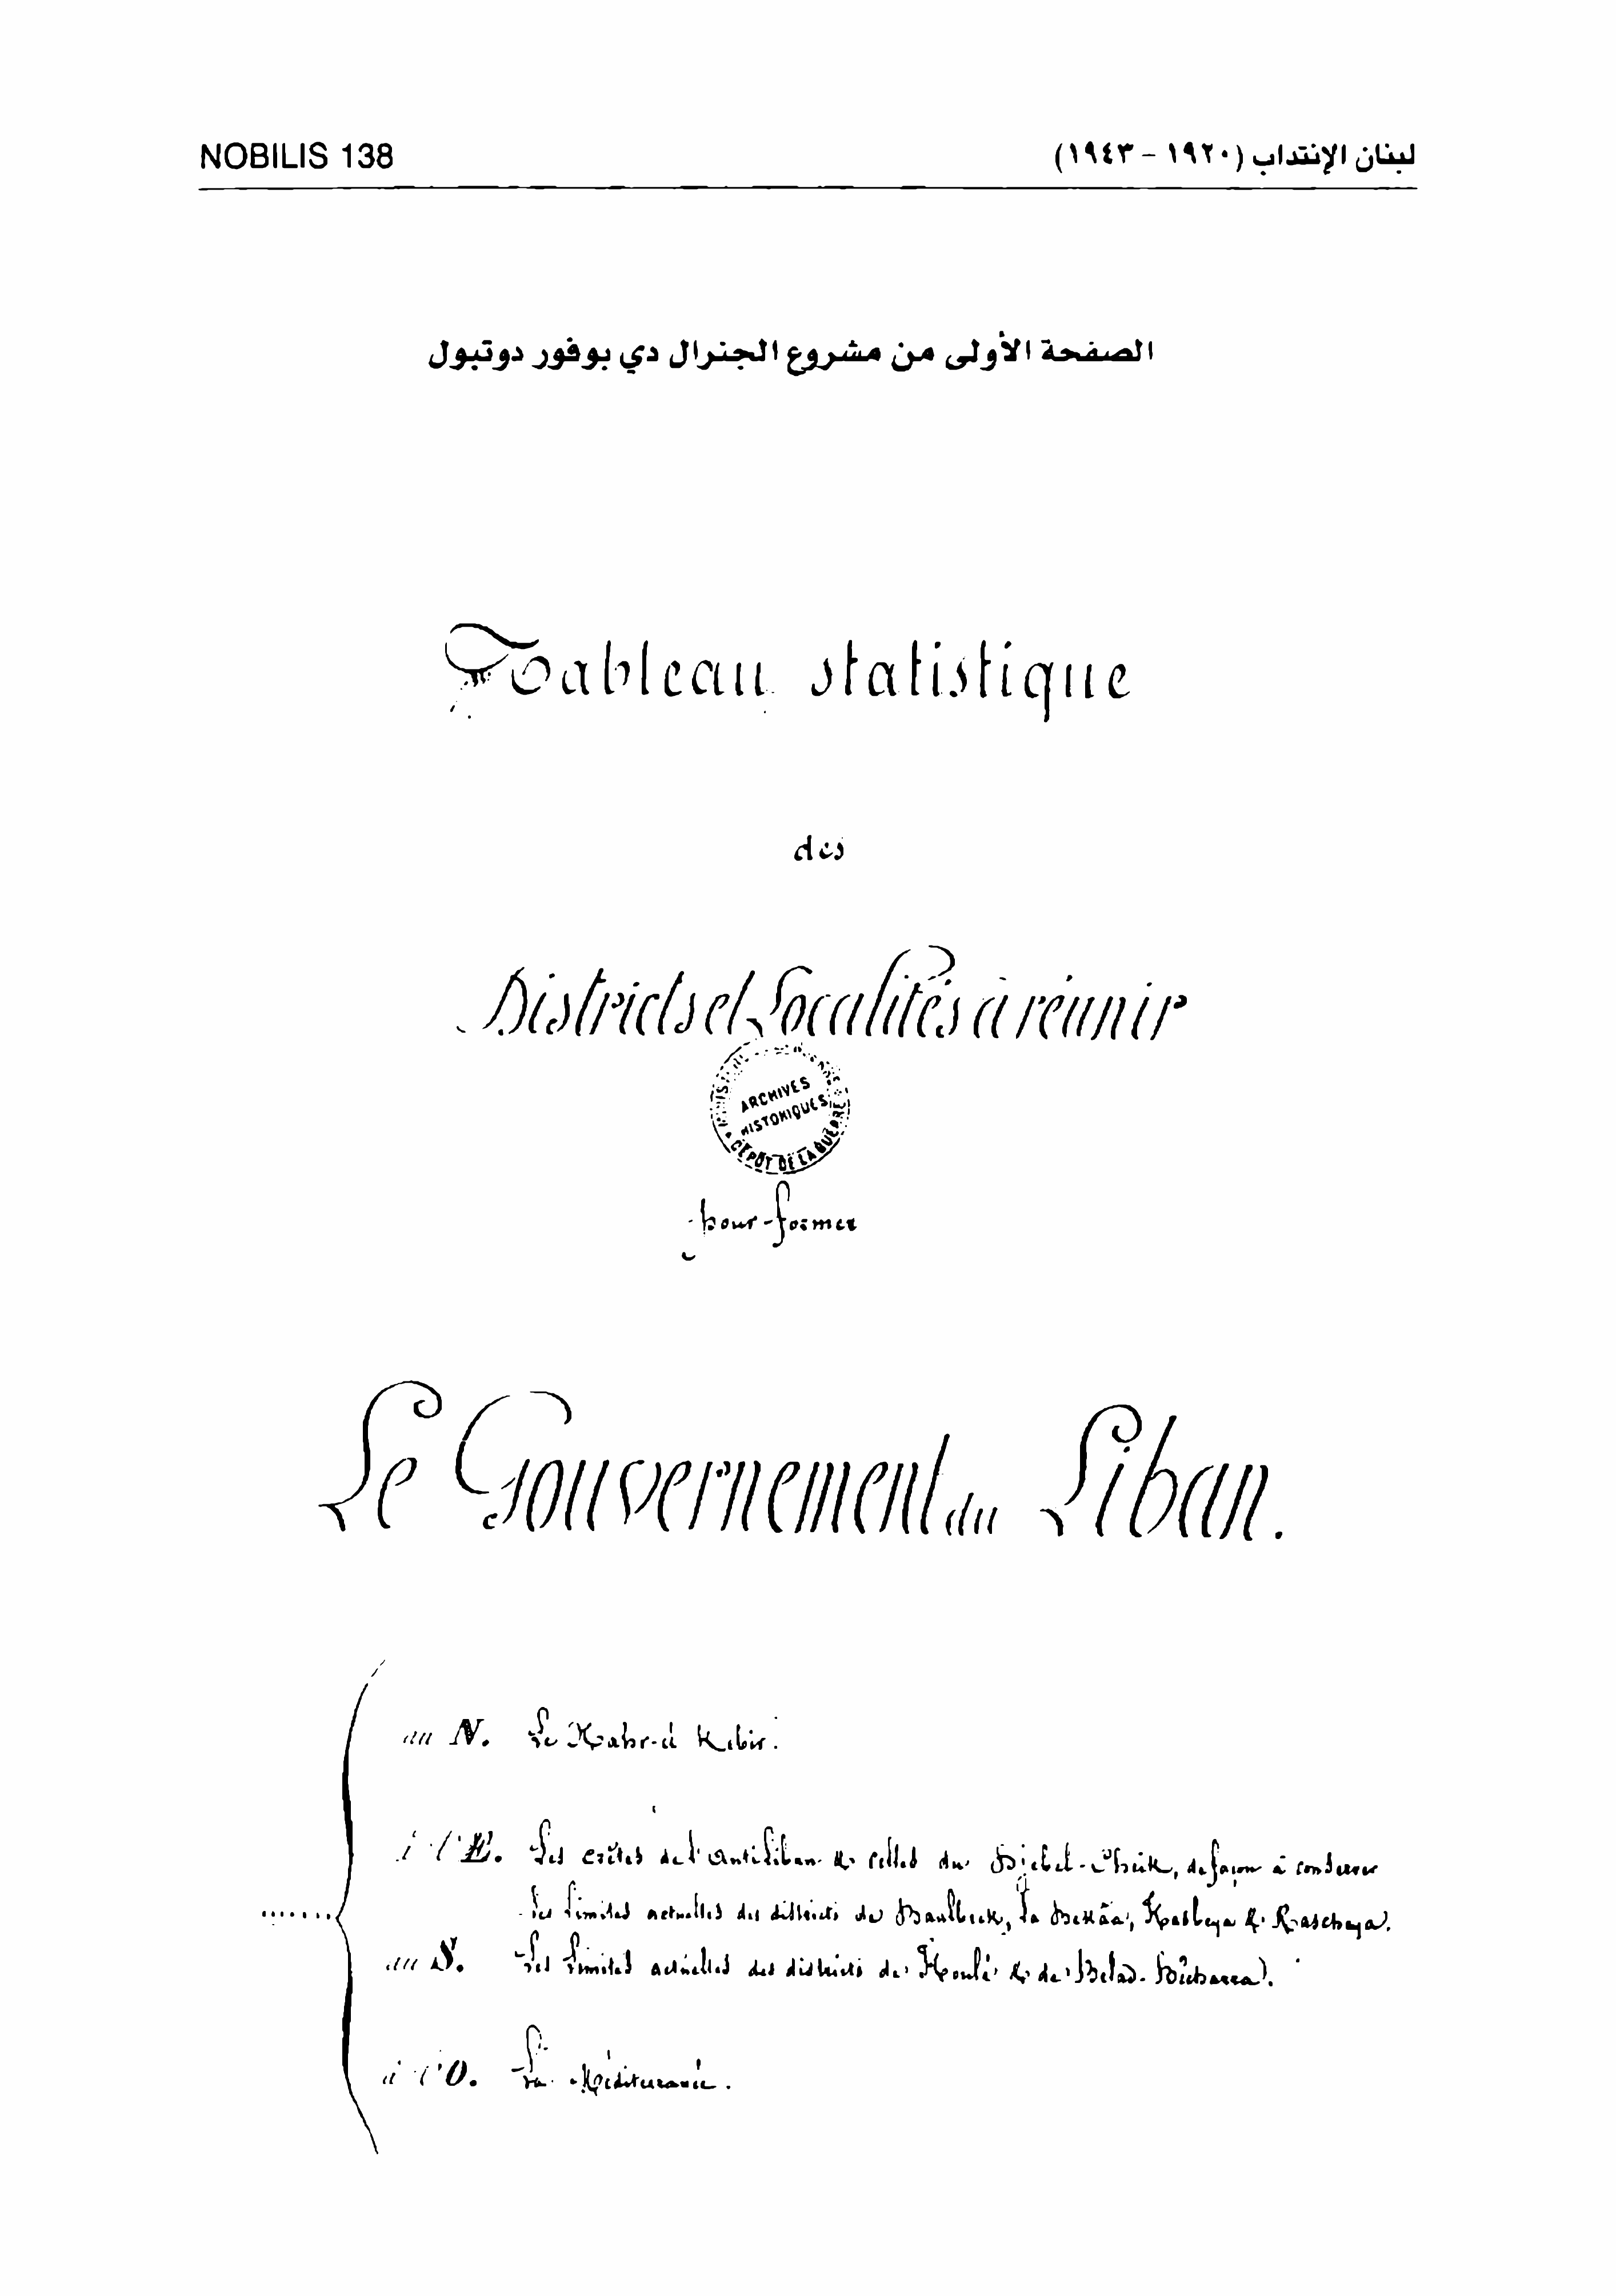 NOBILIS 138
لبنان الإنتداب (١٩٢٠ - ١٩٤٣)
الصفحة الأولى من مشروع الجنرال دي بوفور دوتبول
Tableau statistique
des
Districts et Localités à réunir
ARCHIVES
HISTORIQUES
DÉPÔT DE LA GUERRE
pour former
Le Gouvernement du Liban.
au N. Le Nahr-el Kebir.
à l'E. Les crêtes de l'Antiliban & celles du Djebel-Cheik, de façon à conserver
les limites actuelles des districts de Baalbeck, la Bekâa, Hasbeya & Rascheya.
au S. Les limites actuelles des districts de Houlé & de Belad-Bûcharra.
à l'O. La Méditerranée.